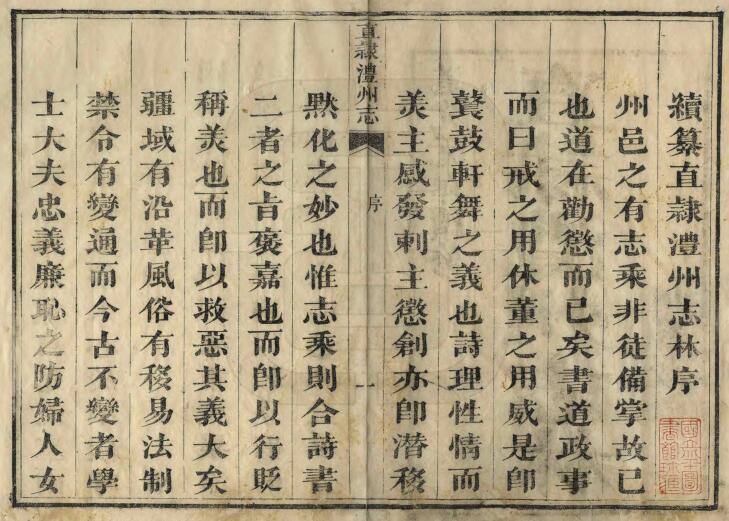 續纂直隷澧州志林序
州邑之有志乘非徒備掌故已
也道在勸懲而已矣書道政事
而曰戒之用休董之用威是卽
鼚鼓軒舞之義也詩理性情而
美主感發刺主懲創亦卽潛移
直隷澧州志
序
一
默化之妙也惟志乘則合詩書
二者之旨褒嘉也而卽以行貶
稱美也而卽以救惡其義大矣
疆域有沿革風俗有移易法制
禁令有變通而今古不變者學
士大夫忠義廉恥之防婦人女